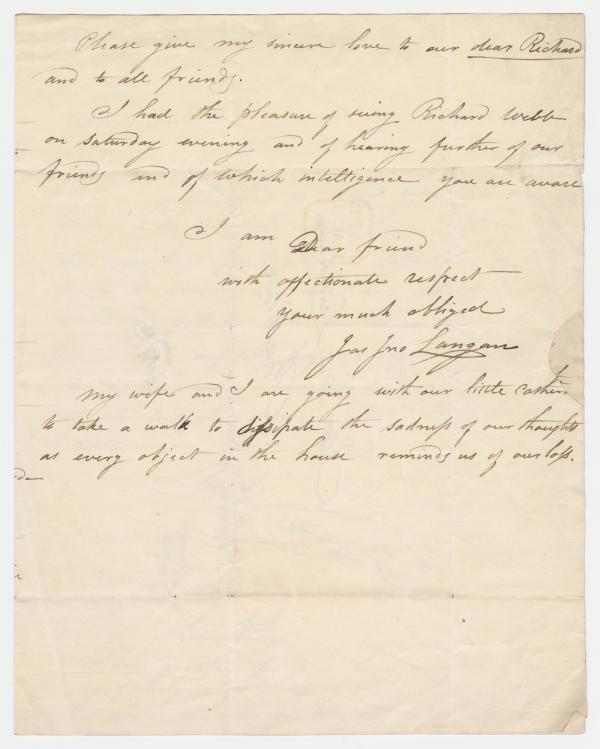 Please give my sincere love to our dear Richard
and to all friends.
I had the pleasure of seeing Richard Webb
on Saturday evening and of hearing further of our
friends and of which intelligence you are aware
I am Dear friend
with affectionate respect
your much obliged
Jas Jno Langan
My wife and I are going with our little
to take a walk to dissipate the sadness of our thoughts
as every object in the house reminds us of our loss.